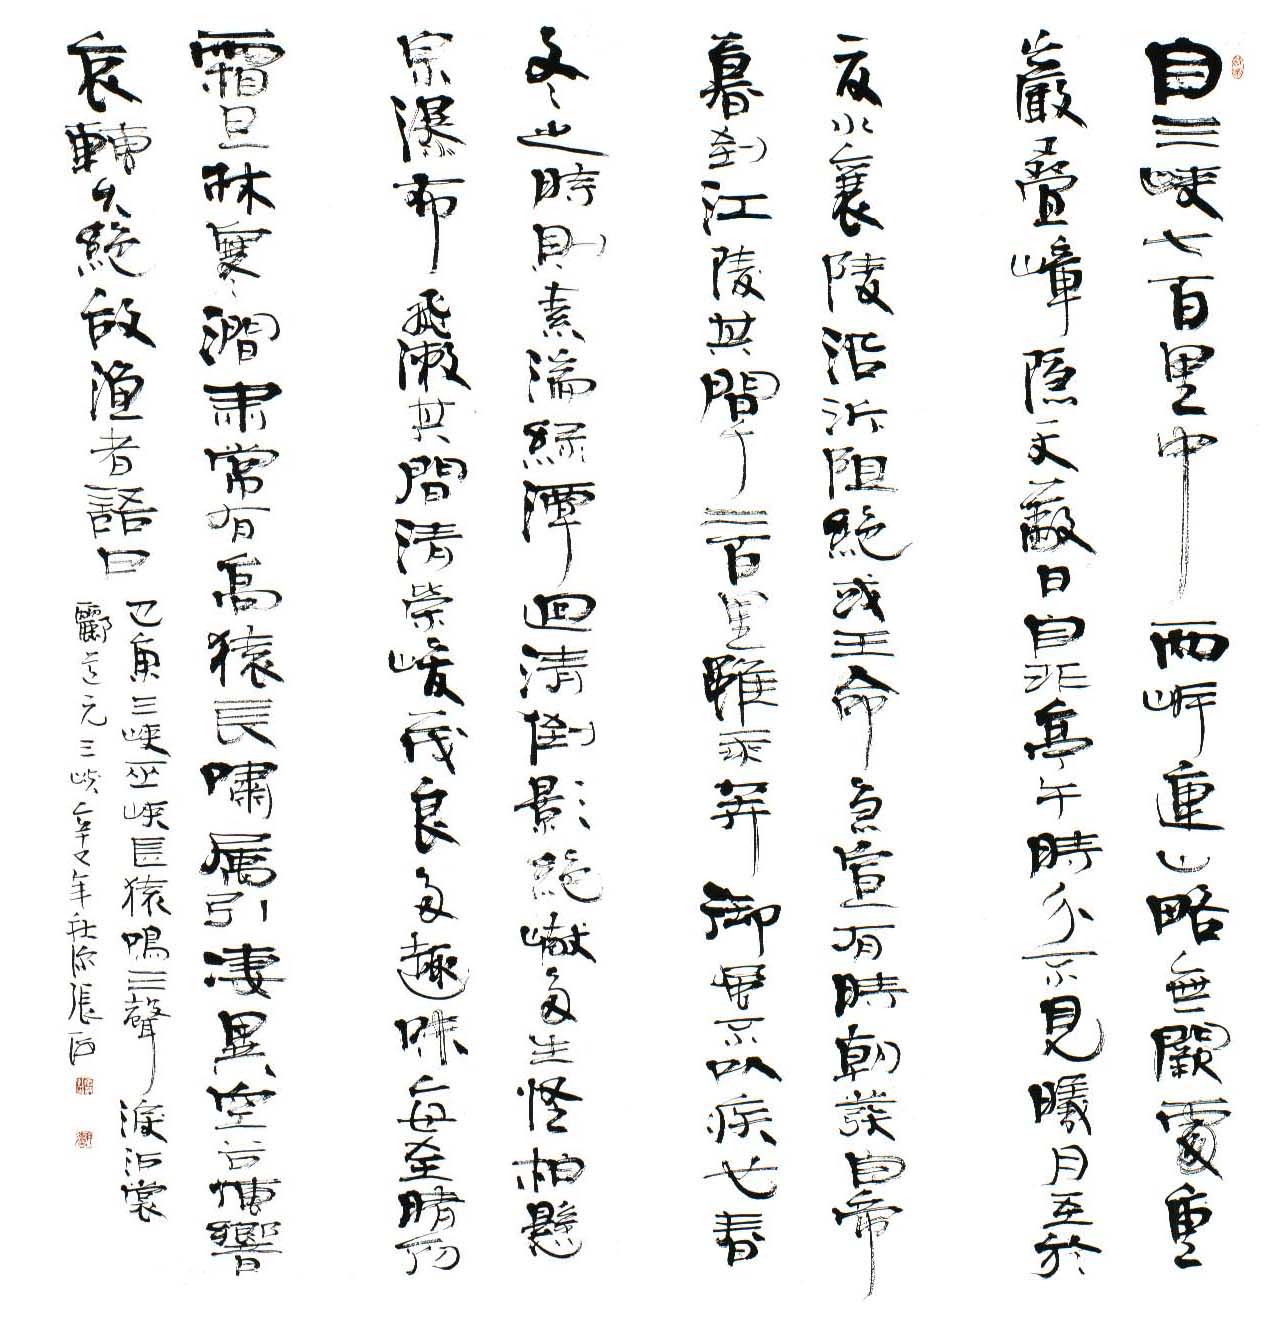 自三峽七百里中兩岸連山略無闕處重
巖疊嶂隱天蔽日自非亭午時分不見曦月至於
夏水襄陵沿泝阻絕或王命急宣有時朝發白帝
暮到江陵其間千二百里雖乘奔御風不以疾也春
冬之時則素湍綠潭迴清倒影絕巘多生怪柏懸
泉瀑布飛漱其間清榮峻茂良多趣味每至晴初
霜旦林寒澗肅常有高猿長嘯屬引淒異空谷傳響
哀轉久絕故漁者語曰
巴東三峽巫峽長猿鳴三聲淚沾裳
酈道元三峽辛又年秋